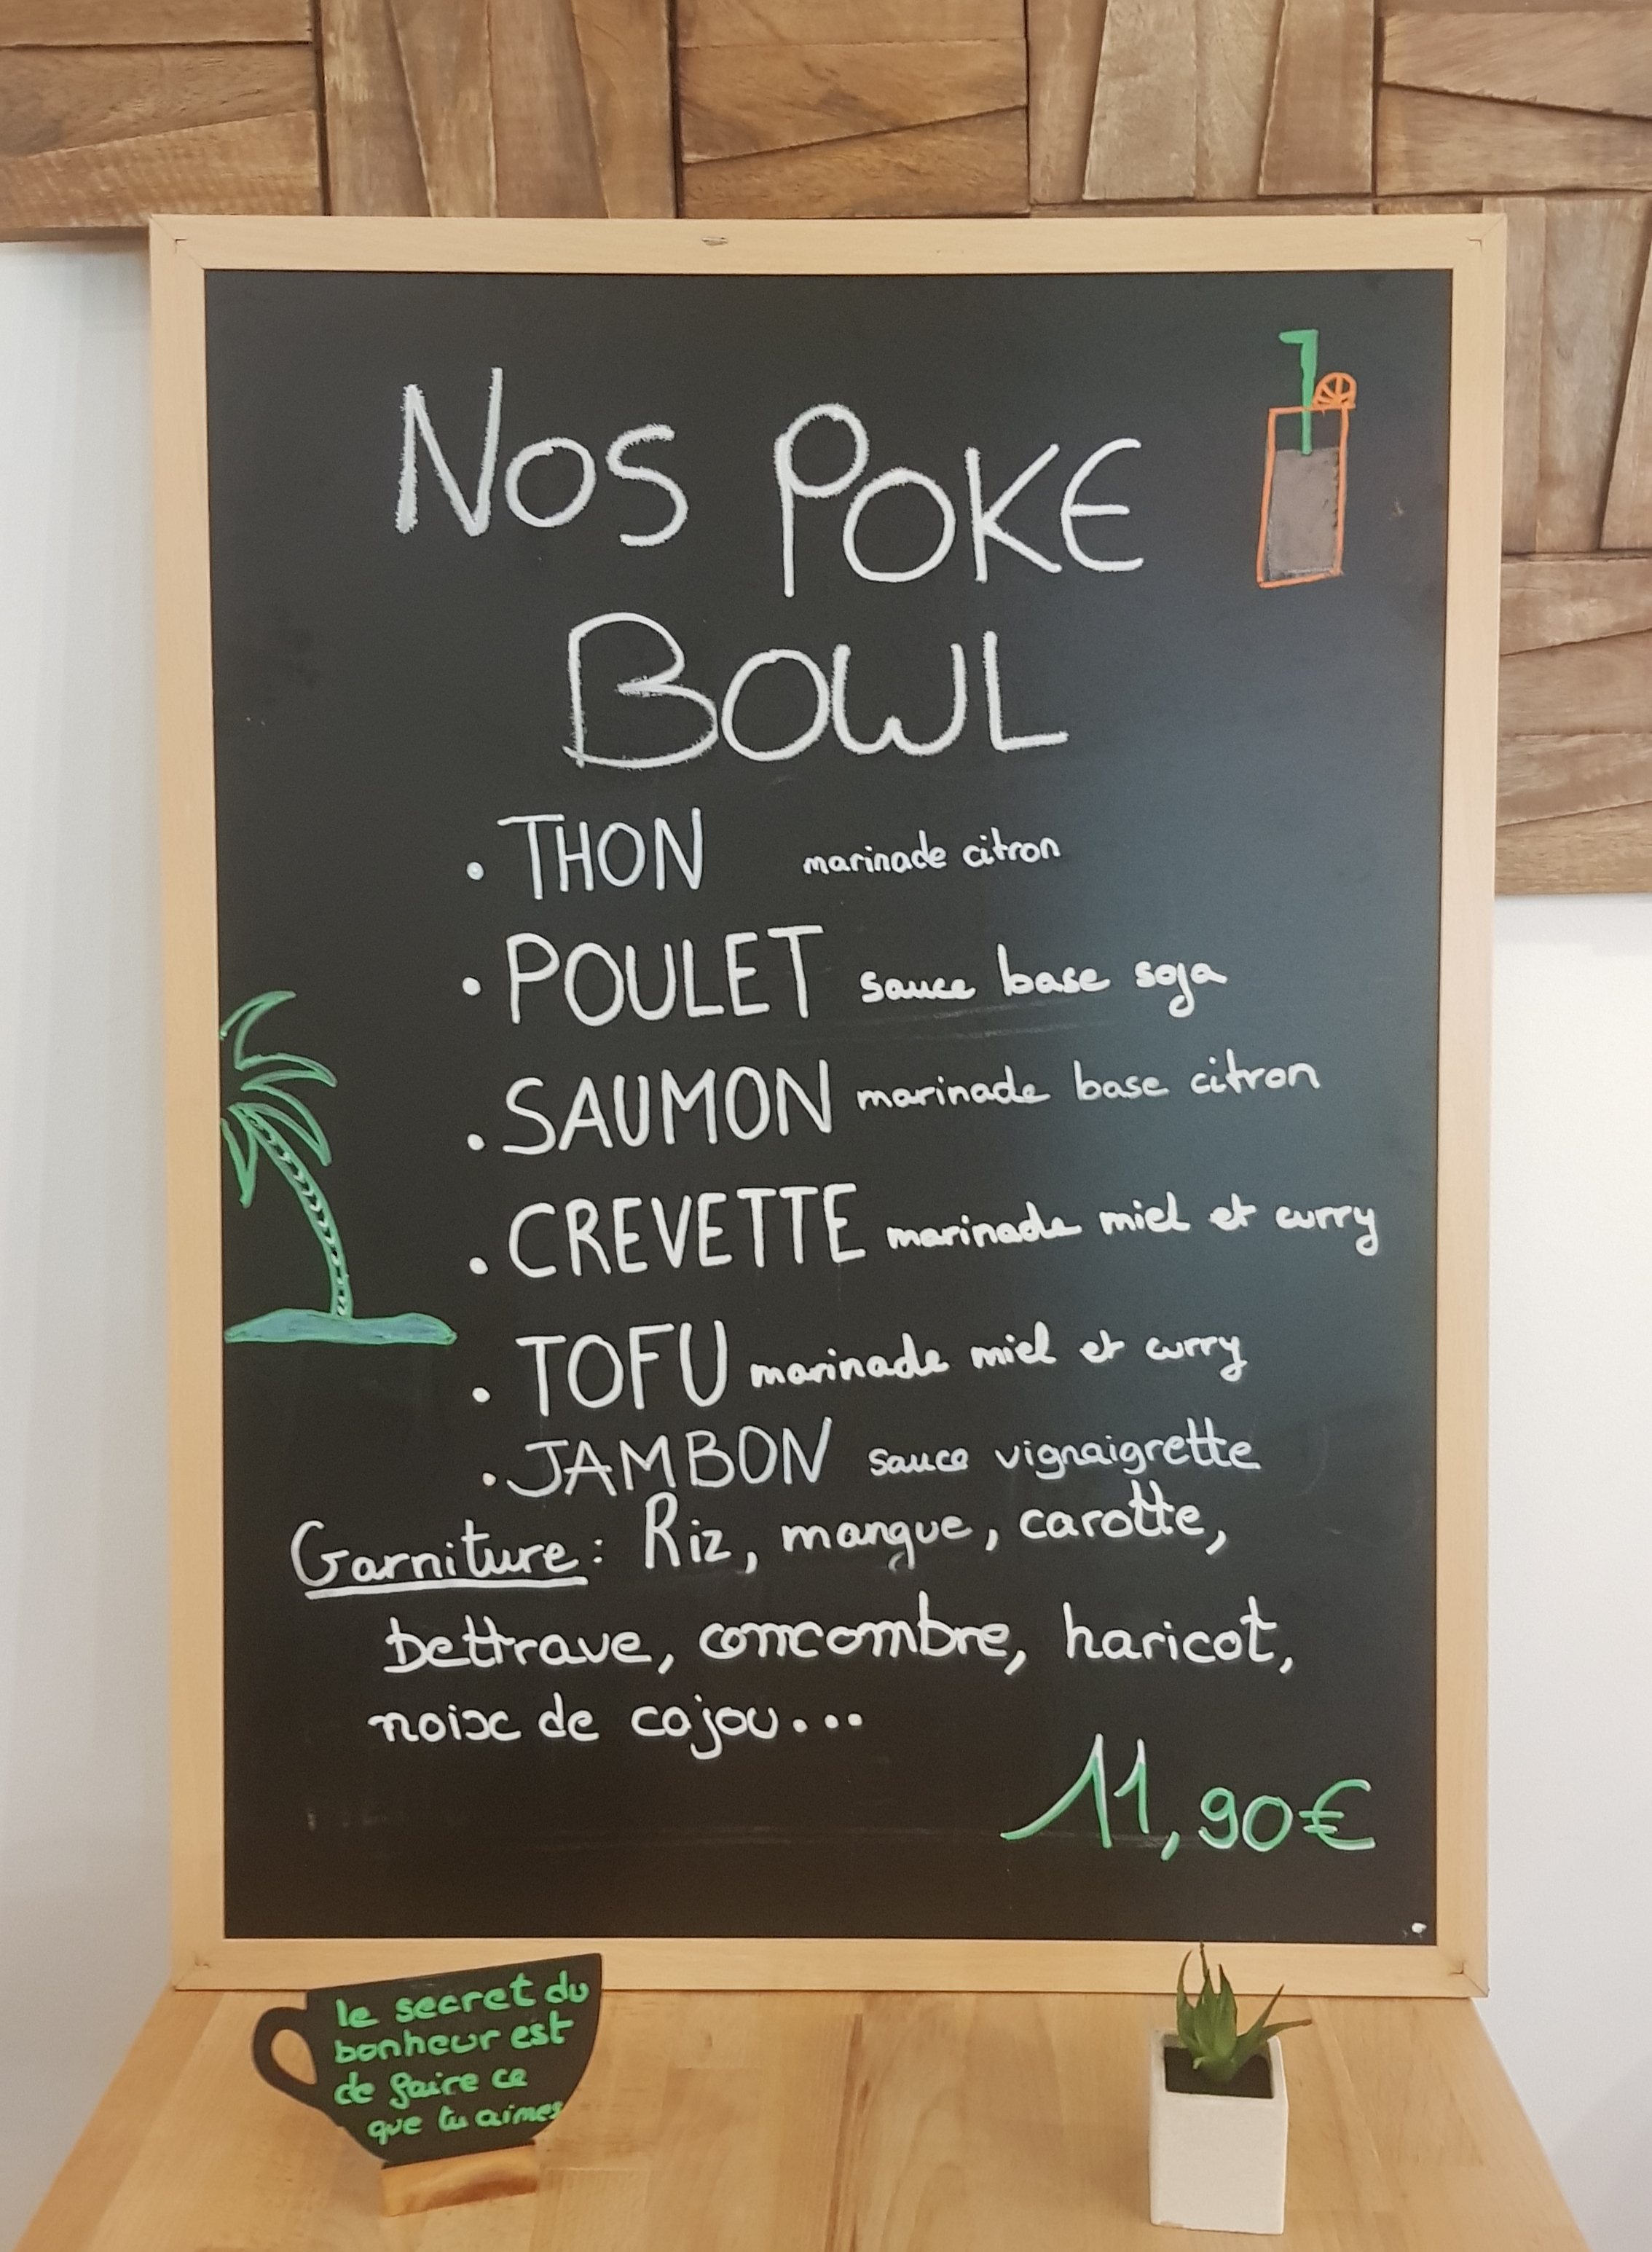 NOS POKE
BOWL
• THON marinade citron
• POULET sauce base soja
• SAUMON marinade base citron
• CREVETTE marinade miel et curry
• TOFU marinade miel et curry
• JAMBON sauce vignaigrette
Garniture : Riz, mangue, carotte,
bettrave, concombre, haricot,
noix de cajou...
11,90€
le secret du
bonheur est
de faire ce
que tu aimes